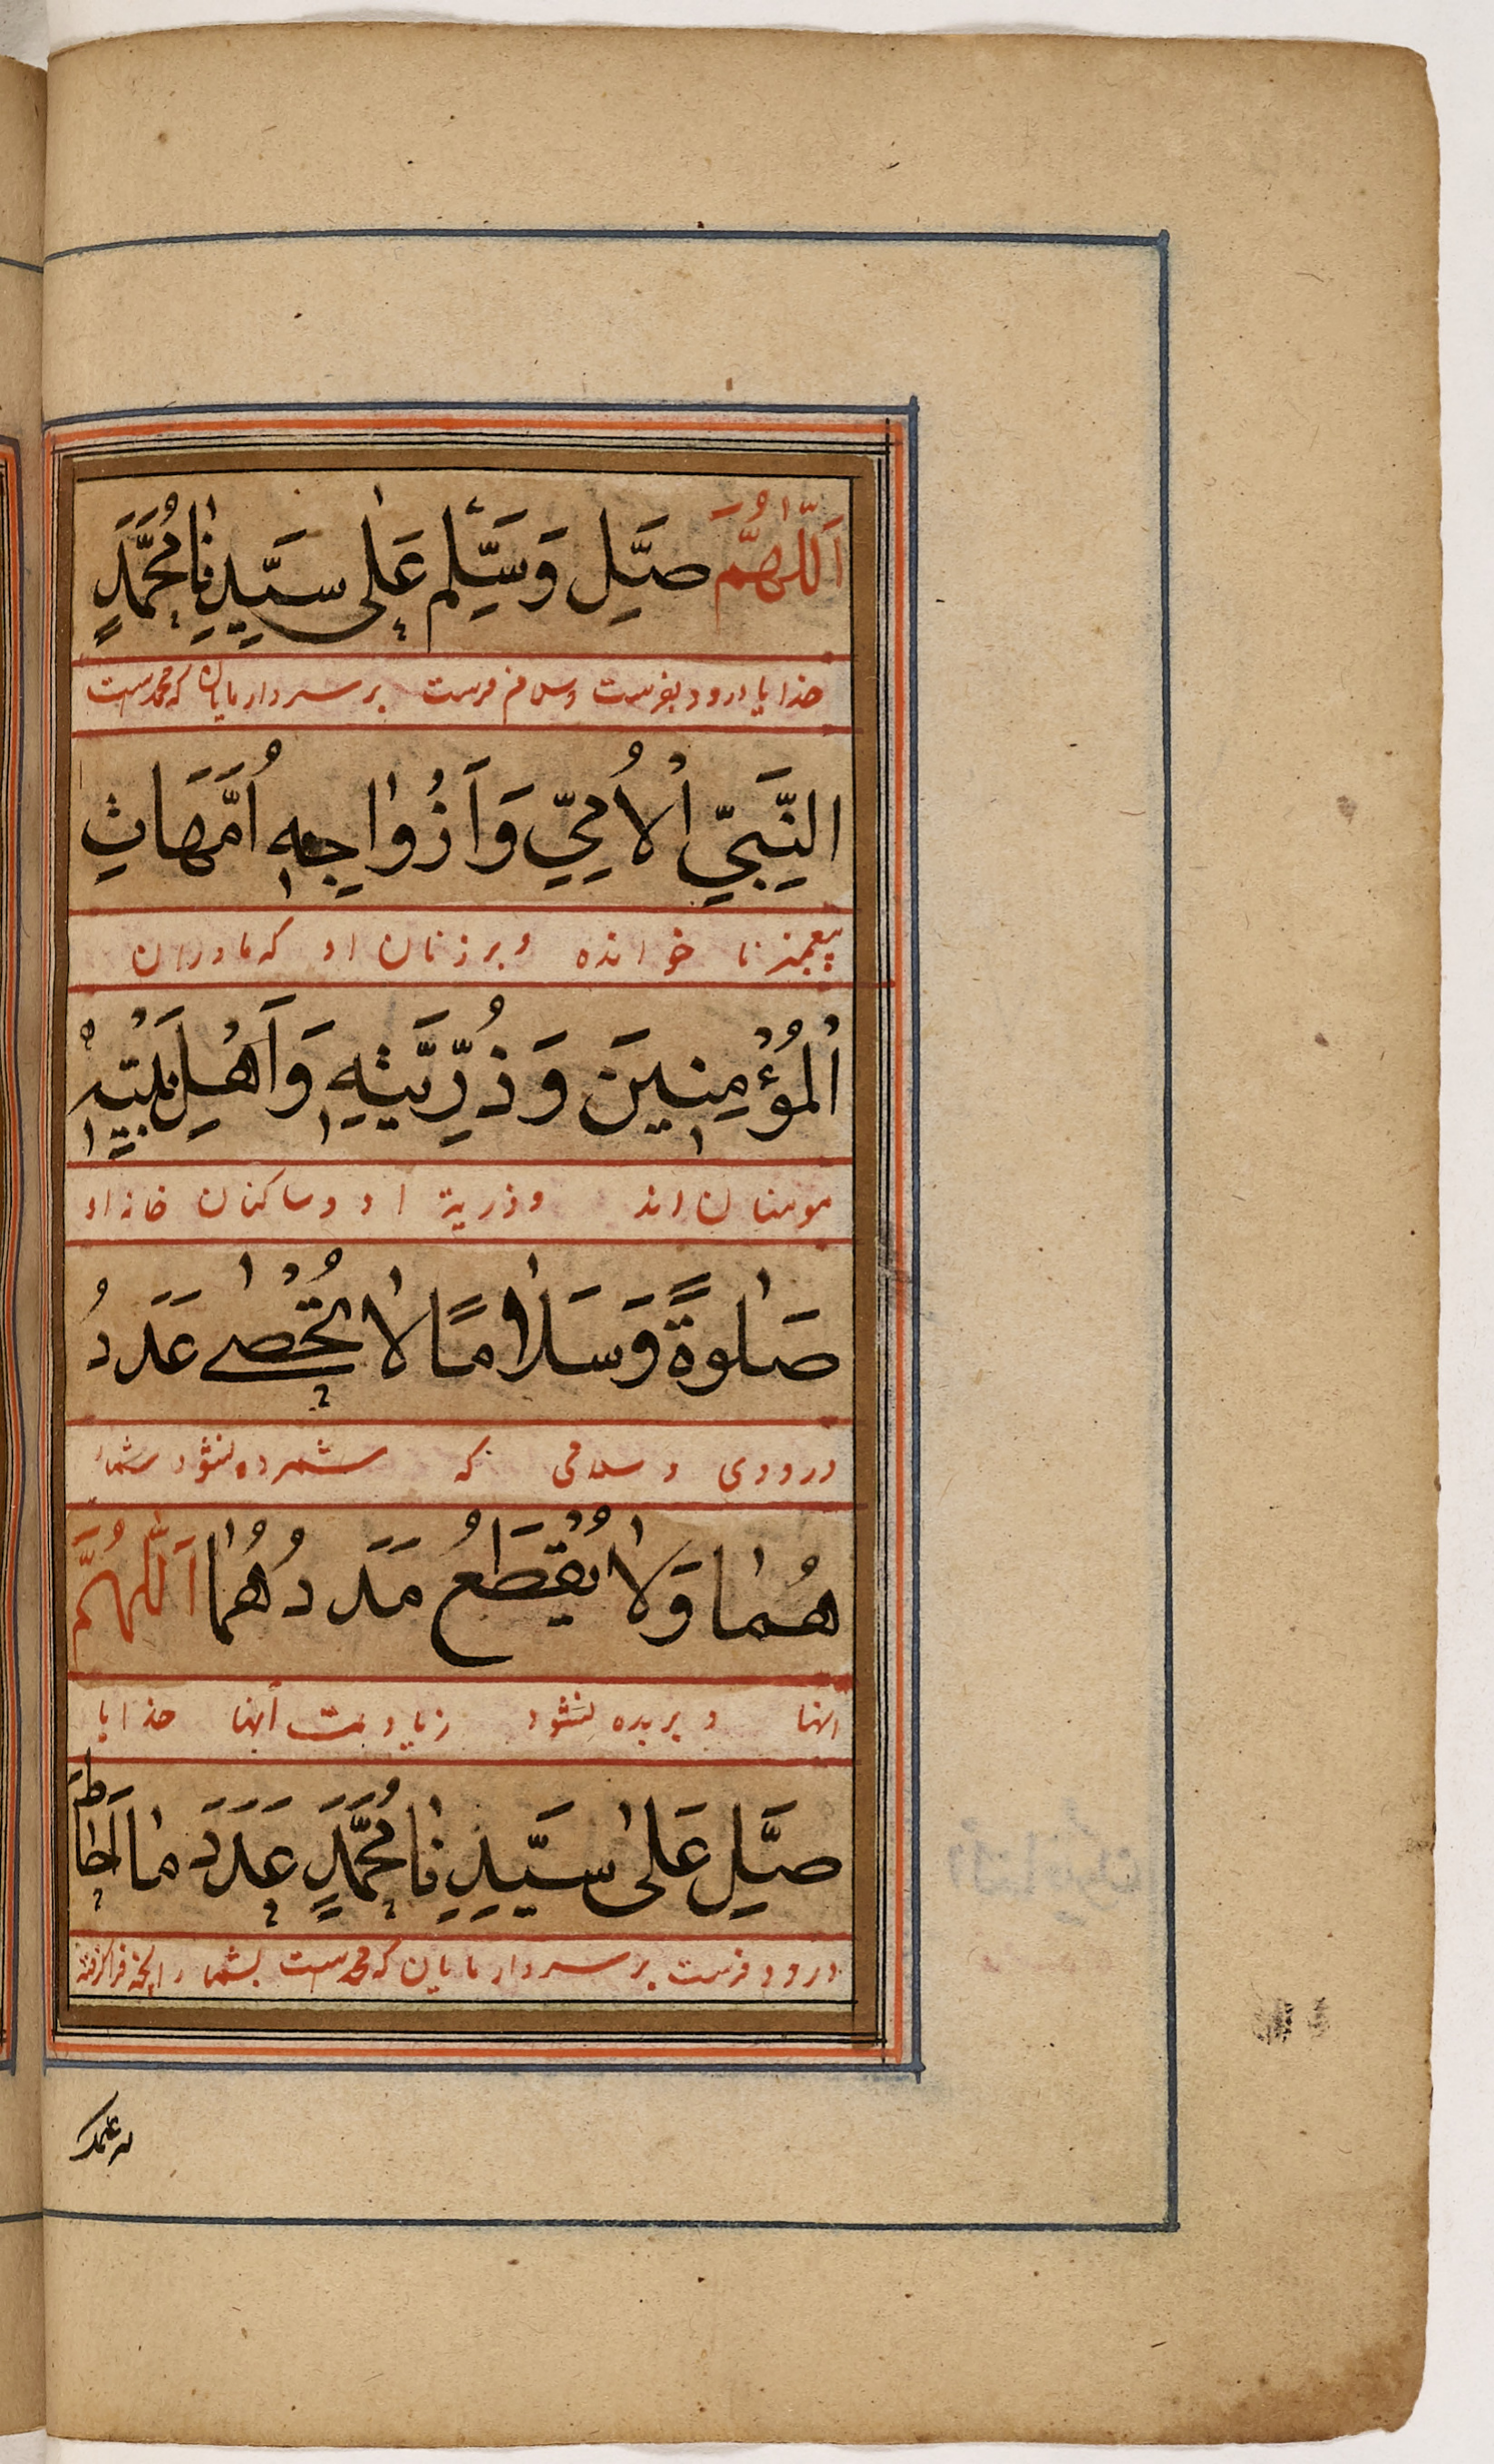 اَللّٰهُمَّ صَلِّ وَسَلِّمْ عَلٰى سَيِّدِنَا مُحَمَّدٍ
خدایا درود بفرست و سلام فرست بر سردار مایان که محمدست
النَّبِيِّ الْاُمِّيِّ وَاَزْوَاجِهٖ اُمَّهَاتِ
پیغمبر نا خوانده و بر زنان او که مادران
الْمُؤْمِنِينَ وَذُرِّيَّتِهٖ وَاَهْلِ بَيْتِهٖ
مومنان اند و ذریة او و ساکنان خانه او
صَلٰوةً وَسَلَامًا لَا تُحْصٰى عَدَدُ
درودی و سلامی که شمرده نشود شمار
هُمَا وَلَا يُقْطَعُ مَدَدُهُمَا اَللّٰهُمَّ
اینها و بریده نشود زیادت اینها خدایا
صَلِّ عَلٰى سَيِّدِنَا مُحَمَّدٍ عَدَدَ مَا اَحَاطَ
درود فرست بر سردار مایان که محمدست بشمار انچه فرا گرفته
به علمك